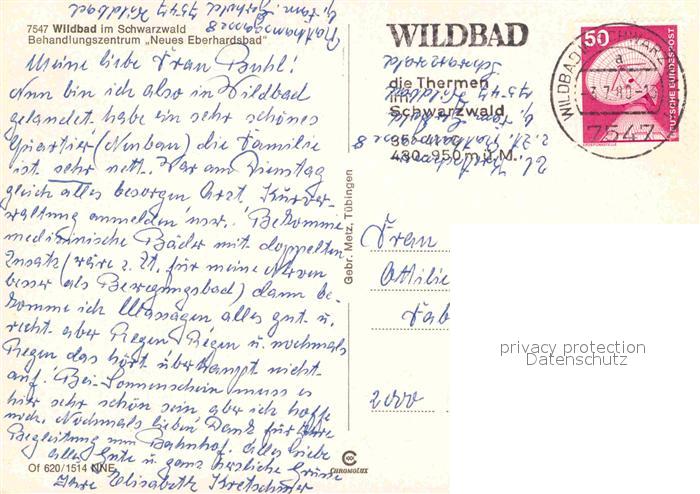 7547 Wildbad im Schwarzwald
Behandlungszentrum „Neues Eberhardsbad"
Meine liebe Frau Buhl!
Nun bin ich also in Wildbad
gelandet. habe ein sehr schönes
Quartier (Neubau) die Familie
ist sehr nett. War am Dienstag
gleich alles besorgen Arzt, Kurver-
waltung anmelden usw. Bekomme
medizinische Bäder mit doppelten
Zusatz (wäre z. Zt. für meine Nerven
besser als Bewegungsbad) dann be-
komme ich Massagen alles gut u.
recht aber Regen Regen u. nochmals
Regen das hört überhaupt nicht
auf. Bei Sonnenschein muss es
hier sehr schön sein aber ich hoffe
noch. Nochmals lieben Dank für Ihre
Begleitung zum Bahnhof. Alles Liebe
alles Gute u. ganz herzliche Grüsse
Ihre Elisabeth Kretschmer
Of 620/1514 NNE
Gebr. Metz, Tübingen
CHROMOLUX
WILDBAD
die Thermen
im
Schwarzwald
430-950 m ü. M.
Schwarzwald
7547 Wildbad
50
DEUTSCHE BUNDESPOST
WILDBAD
a
-3.7.80-
7547
Frau
Ottilie
2000
privacy protection
Datenschutz